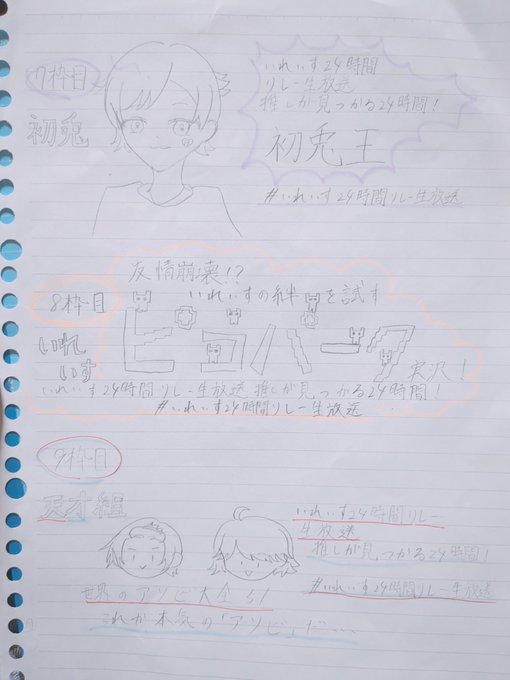 7枠目
初兎
いれいす24時間
リレー生放送
推しが見つかる24時間!
初兎王
#いれいす24時間リレー生放送
友情崩壊!?
8枠目
いれいすの絆を試す
いれ
いす
ピコパーク
実況!
いれいす24時間リレー生放送 推しが見つかる24時間!
#いれいす24時間リレー生放送
9枠目
天才組
いれいす24時間リレー
生放送
推しが見つかる24時間!
#いれいす24時間リレー生放送
世界のアソビ大全51
これが本気の「アソビ」だ…